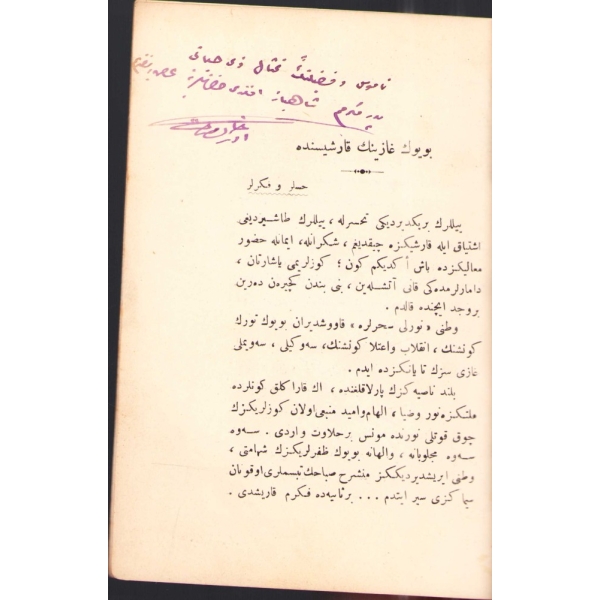 ناموس و فضيلتك تمثال ذی حياتی
پدر مكرم شاهباز افندی حضرتلرينه
بويوك غازينك قارشيسنده
حسلر و فكرلر
ييللرك بريكديرديكی تحسرله ، ييللرك طاشيرديغی
اشتياق ايله قارشيكزه چيقديغم ، شكرانله، ايمانله حضور
معاليكزده باش أكديكم كون ؛ كوزلريمی ياشارتان ،
دامارلرمده‌كی قانی آتشله‌ين ، بنی بندن كچيرن ده‌رين
بر وجد ايچنده قالدم .
وطنی « نورلی سحرلره » قاووشديران بويوك تورك
كونشنك ، انقلاب واعتلا كونشنك، سه‌وكيلی ، سه‌ويملی
غازی سزك تا يانكزده ايدم .
بلند ناصيه‌كزك پارلاقلغنده ، اك قاراكلق كونلرده
ملتكزه نور وضيا ، الهام واميد منبعی اولان كوزلريكزك
چوق قوتلی نورنده مونس بر حلاوت واردی . سه‌وه
سه‌وه مجلوبانه ، والهانه بويوك ظفرلريكزك شهامتی ،
وطنی ايريشديرديككز منشرح صباحك تبسملری اوقونان
سيماكزی سير ايتدم ... بر ثانيه‌ده فكرم قاريشدی .